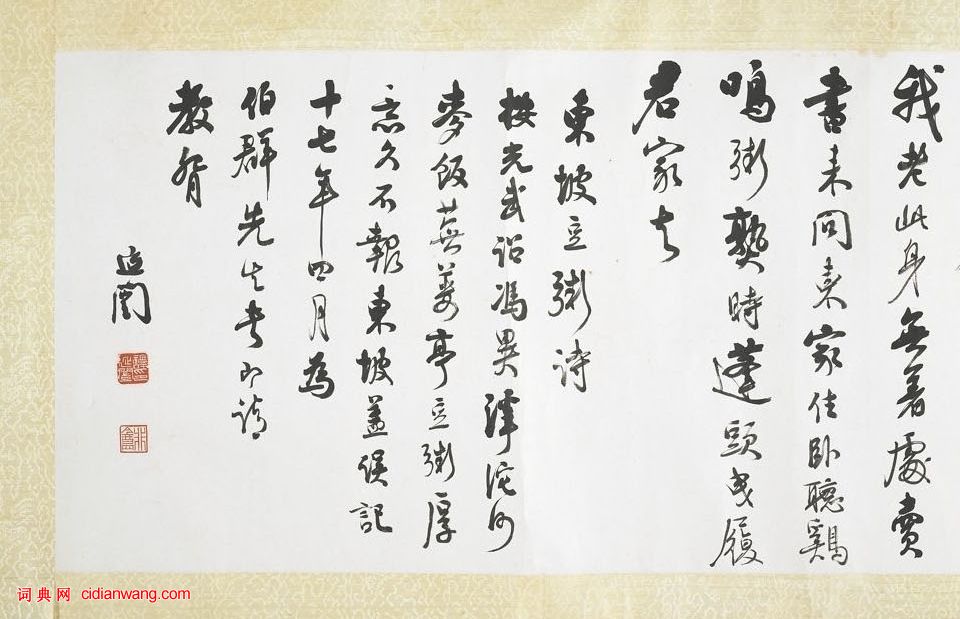 我老此身無著處賣
書来問東家住卧聽鷄
鳴粥熟時蓬頭曳履
君家去
東坡豆粥詩
按光武詔馮異滹沱河
麥飯蕪蔞亭豆粥厚
意久不報東坡盖误記
十七年四月為
伯群先生書即請
教督
延闓
詞典网 cidianwang.com